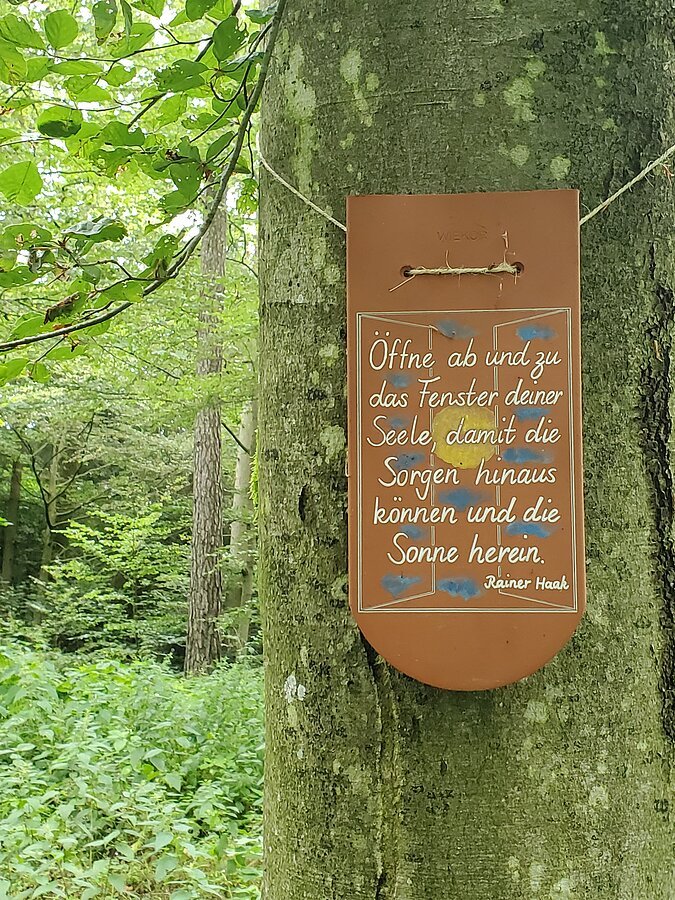 WIEKOR
Öffne ab und zu
das Fenster deiner
Seele, damit die
Sorgen hinaus
können und die
Sonne herein.
Rainer Haak